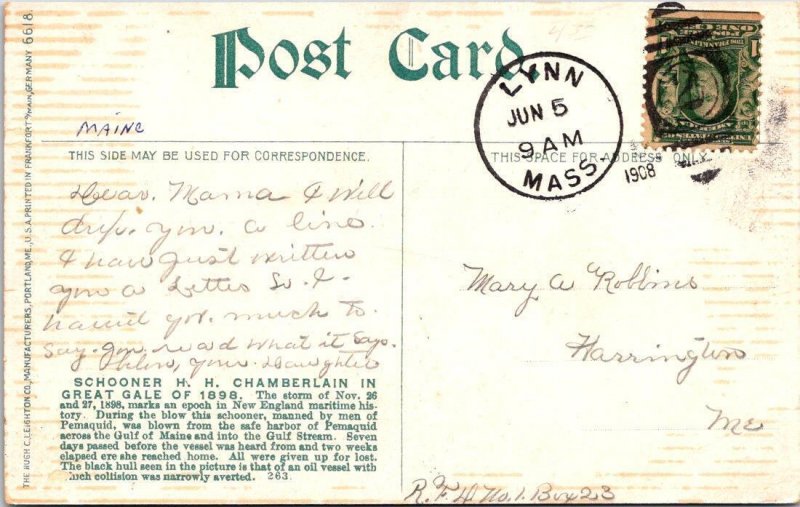 THE HUGH C. LEIGHTON CO., MANUFACTURERS, PORTLAND, ME., U.S.A. PRINTED IN FRANKFORT O/MAIN, GERMANY 6618.
Post Card
MAINE
THIS SIDE MAY BE USED FOR CORRESPONDENCE.
THIS SPACE FOR ADDRESS ONLY.
LYNN
JUN 5
9 AM
MASS.
1908
Dear. Mama I will
drop. you. a line.
I have just written
you a Letter So. I.
havnt got. much to.
say. you. read what it says.
your. Daughter
Mary A Robbins
Harrington
Me
R.F.D. No. 1. Box 23
SCHOONER H. H. CHAMBERLAIN IN
GREAT GALE OF 1898. The storm of Nov. 26
and 27, 1898, marks an epoch in New England maritime his-
tory. During the blow this schooner, manned by men of
Pemaquid, was blown from the safe harbor of Pemaquid
across the Gulf of Maine and into the Gulf Stream. Seven
days passed before the vessel was heard from and two weeks
elapsed ere she reached home. All were given up for lost.
The black hull seen in the picture is that of an oil vessel with
which collision was narrowly averted. 263.